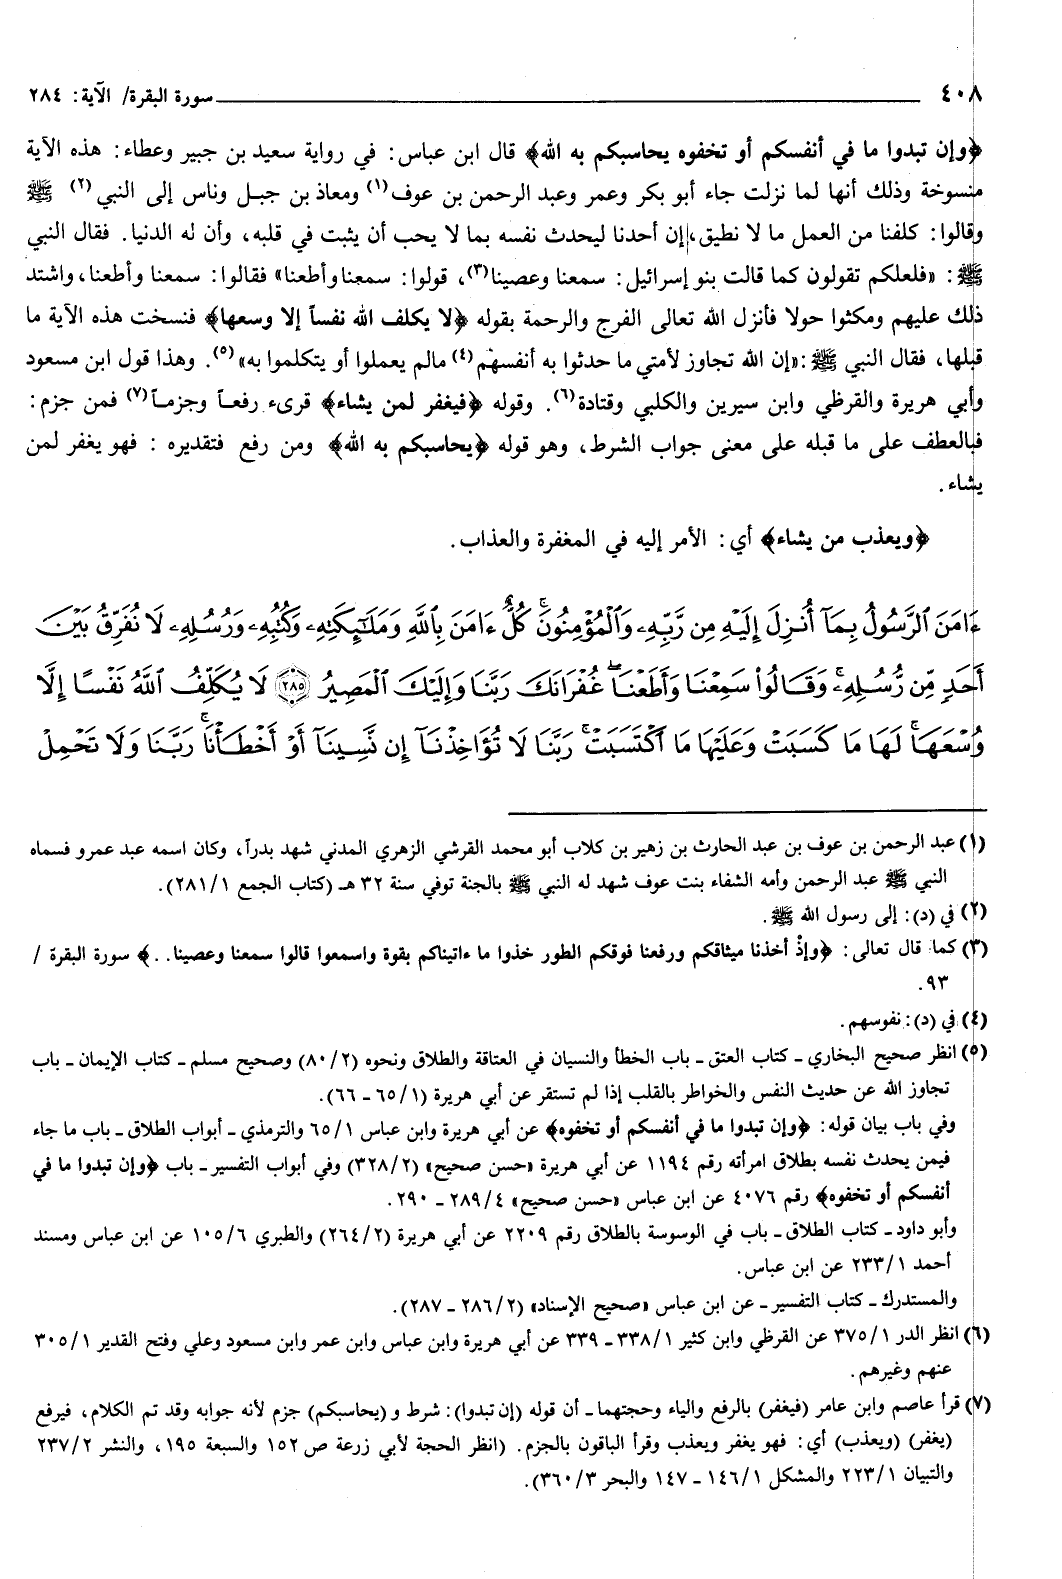 ٤٠٨ سورة البقرة/ الآية: ٢٨٤
﴿وإن تبدوا ما في أنفسكم أو تخفوه يحاسبكم به الله﴾ قال ابن عباس: في رواية سعيد بن جبير وعطاء: هذه الآية
منسوخة وذلك أنها لما نزلت جاء أبو بكر وعمر وعبد الرحمن بن عوف(١) ومعاذ بن جبل وناس إلى النبي(٢) ﷺ
وقالوا: كلفنا من العمل ما لا نطيق، إن أحدنا ليحدث نفسه بما لا يحب أن يثبت في قلبه، وأن له الدنيا. فقال النبي
ﷺ: «فلعلكم تقولون كما قالت بنو إسرائيل: سمعنا وعصينا(٣)، قولوا: سمعنا وأطعنا» فقالوا: سمعنا وأطعنا، واشتد
ذلك عليهم ومكثوا حولا فأنزل الله تعالى الفرج والرحمة بقوله ﴿لا يكلف الله نفساً إلا وسعها﴾ فنسخت هذه الآية ما
قبلها، فقال النبي ﷺ: «إن الله تجاوز لأمتي ما حدثوا به أنفسهم(٤) مالم يعملوا أو يتكلموا به»(٥). وهذا قول ابن مسعود
وأبي هريرة والقرظي وابن سيرين والكلبي وقتادة(٦). وقوله ﴿فيغفر لمن يشاء﴾ قرىء رفعاً وجزماً(٧) فمن جزم:
فبالعطف على ما قبله على معنى جواب الشرط، وهو قوله ﴿يحاسبكم به الله﴾ ومن رفع فتقديره : فهو يغفر لمن
يشاء.
﴿ويعذب من يشاء﴾ أي: الأمر إليه في المغفرة والعذاب.
ءَامَنَ ٱلرَّسُولُ بِمَآ أُنزِلَ إِلَيْهِ مِن رَّبِّهِۦ وَٱلْمُؤْمِنُونَۚ كُلٌّ ءَامَنَ بِٱللَّهِ وَمَلَٰٓئِكَتِهِۦ وَكُتُبِهِۦ وَرُسُلِهِۦ لَا نُفَرِّقُ بَيْنَ
أَحَدٍ مِّن رُّسُلِهِۦۚ وَقَالُوا۟ سَمِعْنَا وَأَطَعْنَاۖ غُفْرَانَكَ رَبَّنَا وَإِلَيْكَ ٱلْمَصِيرُ ٢٨٥ لَا يُكَلِّفُ ٱللَّهُ نَفْسًا إِلَّا
وُسْعَهَاۚ لَهَا مَا كَسَبَتْ وَعَلَيْهَا مَا ٱكْتَسَبَتْۗ رَبَّنَا لَا تُؤَاخِذْنَآ إِن نَّسِينَآ أَوْ أَخْطَأْنَاۚ رَبَّنَا وَلَا تَحْمِلْ
(١) عبد الرحمن بن عوف بن عبد الحارث بن زهير بن كلاب أبو محمد القرشي الزهري المدني شهد بدراً، وكان اسمه عبد عمرو فسماه
النبي ﷺ عبد الرحمن وأمه الشفاء بنت عوف شهد له النبي ﷺ بالجنة توفي سنة ٣٢ هـ (كتاب الجمع ٢٨١/١).
(٢) في (د): إلى رسول الله ﷺ.
(٣) كما قال تعالى: ﴿وإذْ أخذنا ميثاقكم ورفعنا فوقكم الطور خذوا ما ءاتيناكم بقوة واسمعوا قالوا سمعنا وعصينا. .﴾ سورة البقرة /
٩٣.
(٤) في (د): نفوسهم.
(٥) انظر صحيح البخاري ـ كتاب العتق ـ باب الخطأ والنسيان في العتاقة والطلاق ونحوه (٨٠/٢) وصحيح مسلم ـ كتاب الإيمان ـ باب
تجاوز الله عن حديث النفس والخواطر بالقلب إذا لم تستقر عن أبي هريرة (٦٥/١ ـ ٦٦).
وفي باب بيان قوله: ﴿وإن تبدوا ما في أنفسكم أو تخفوه﴾ عن أبي هريرة وابن عباس ٦٥/١ والترمذي ـ أبواب الطلاق ـ باب ما جاء
فيمن يحدث نفسه بطلاق امرأته رقم ١١٩٤ عن أبي هريرة «حسن صحيح» (٣٢٨/٢) وفي أبواب التفسير ـ باب ﴿وإن تبدوا ما في
أنفسكم أو تخفوه﴾ رقم ٤٠٧٦ عن ابن عباس «حسن صحيح» ٢٨٩/٤ ـ ٢٩٠.
وأبو داود ـ كتاب الطلاق ـ باب في الوسوسة بالطلاق رقم ٢٢٠٩ عن أبي هريرة (٢٦٤/٢) والطبري ١٠٥/٦ عن ابن عباس ومسند
أحمد ٢٣٣/١ عن ابن عباس.
والمستدرك ـ كتاب التفسير ـ عن ابن عباس «صحيح الإسناد» (٢٨٦/٢ ـ ٢٨٧).
(٦) انظر الدر ٣٧٥/١ عن القرظي وابن كثير ٣٣٨/١ ـ ٣٣٩ عن أبي هريرة وابن عباس وابن عمر وابن مسعود وعلي وفتح القدير ٣٠٥/١
عنهم وغيرهم.
(٧) قرأ عاصم وابن عامر (فيغفر) بالرفع والياء وحجتهما ـ أن قوله (إن تبدوا): شرط و (يحاسبكم) جزم لأنه جوابه وقد تم الكلام، فيرفع
(يغفر) (ويعذب) أي: فهو يغفر ويعذب وقرأ الباقون بالجزم. (انظر الحجة لأبي زرعة ص ١٥٢ والسبعة ١٩٥، والنشر ٢٣٧/٢
والتبيان ٢٢٣/١ والمشكل ١٤٦/١ ـ ١٤٧ والبحر ٣٦٠/٣).